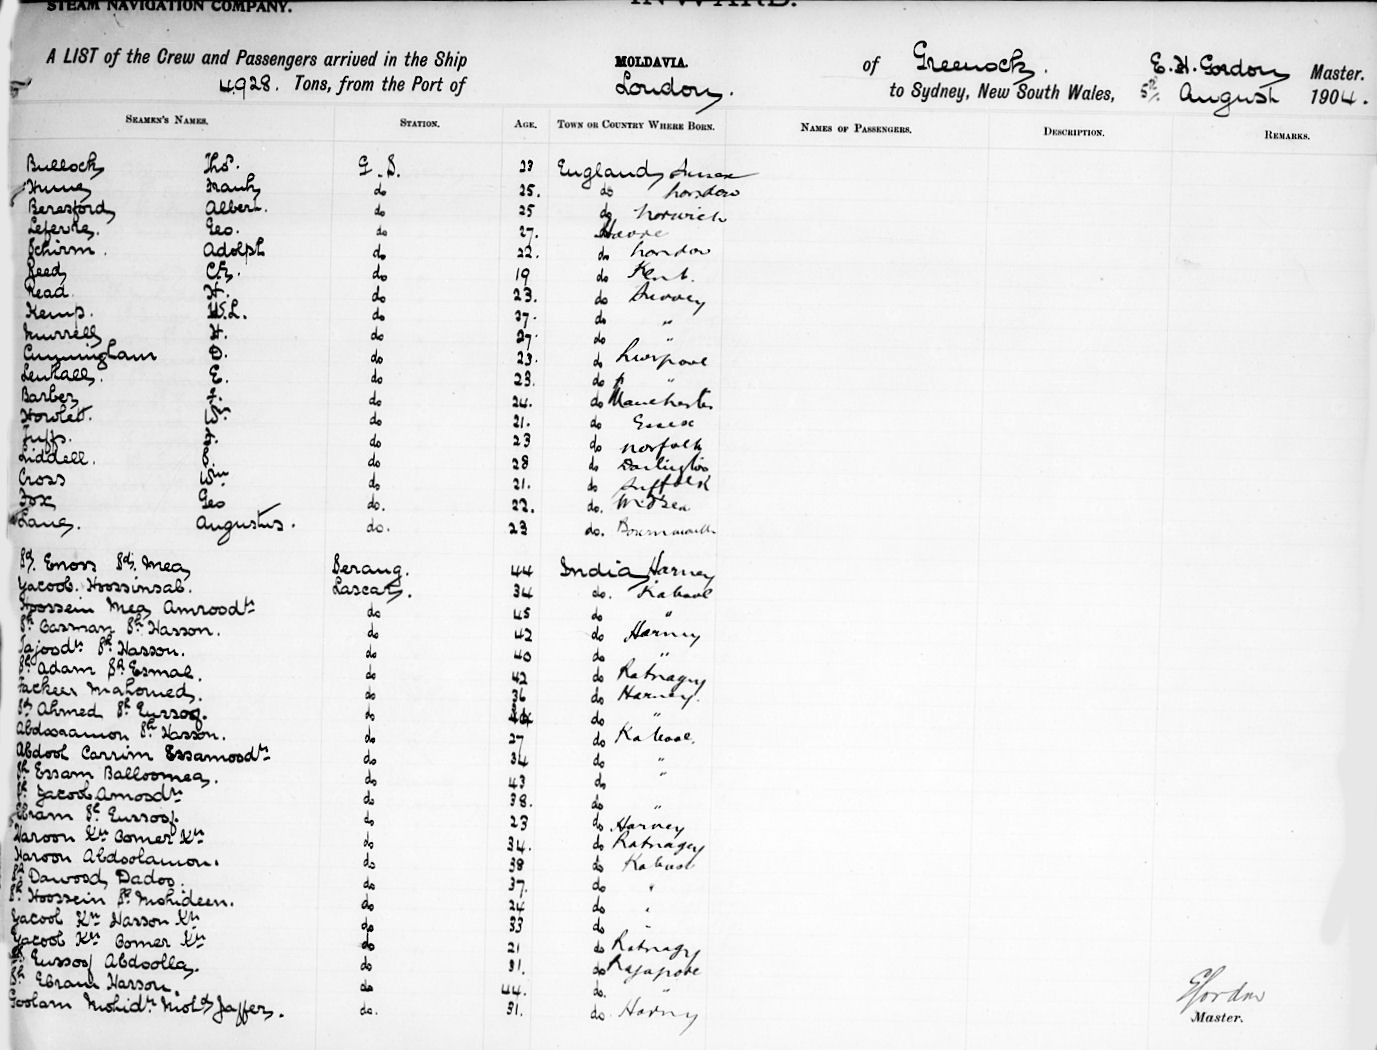 STEAM NAVIGATION COMPANY. INWARD.
A LIST of the Crew and Passengers arrived in the Ship MOLDAVIA. of Greenock. E. H. Gordon Master.
4928. Tons, from the Port of London. to Sydney, New South Wales, 5th August 1904.
SEAMEN'S NAMES. STATION. AGE. TOWN OR COUNTRY WHERE BORN. NAMES OF PASSENGERS. DESCRIPTION. REMARKS.
Bullock Thos. G.S. 23 England Sussex
Frank do 25. do London
Beresford Albert. do 25 do Norwich
Lefevre. Geo. do 27. Havre
Schirm. Adolph do 22. do London
Reed do 19 do Kent.
Read H. do 23. do Surrey
Kemp. W.L. do 37. do "
Murrell H. do 27. do "
Cunningham D. do 23. do Liverpool
Lenhall. E. do 23. do "
Barber do 24. do Manchester
Howlett. Wm. do 21. do Essex
Tuffs. do 23 do Norfolk
Liddell. do 28 do Darlington
Cross Wm do 21. do Suffolk
Fox Geo do. 22. do.
Lane. Augustus. do. 23 do. Bournemouth
Sd. Enoss Sd. Mea Serang. 44 India Harney
Yacoob. Hoossinsab. Lascar. 34 do. Kabool
Hoossein Mea Amroodtn do 45 do "
Sk. Oosman Sk. Hasson. do 42 do Harney
Tajoodtn Sk. Hasson. do 40 do "
Sk. Adam Sk. Esmal. do 42 do Ratnagry
Fackeer Mahomed. do 36 do Harney.
Sk. Ahmed Sk. Eussoof. do do "
Abdooramon Sk. Hasson. do 27 do Kabool.
Abdool Carrim Essamoodtn do 34 do "
Sk. Essam Balloomea. do 43 do "
Sk. Yacoob Amoodtn do 38. do "
Ebram Sk. Eussoof. do 23 do Harney
Haroon Kn Oomer Kn do 34. do Ratnagry
Haroon Abdoolamon. do 38 do Kabool
Sk. Dawood Dadoo. do 37. do "
Sk. Hoossein Sk. Mohideen. do 24 do "
Yacoob Kn Hasson Kn do 33 do "
Yacoob Kn Oomer Kn do 21 do Ratnagry
Sk. Eussoof Abdoolla. do 31. do Rajapore
Sk. Ebram Hasson. do 44. do. "
Goolam Mohidn. Mohd. Jaffer. do. 31. do. Harny
EGordon
Master.